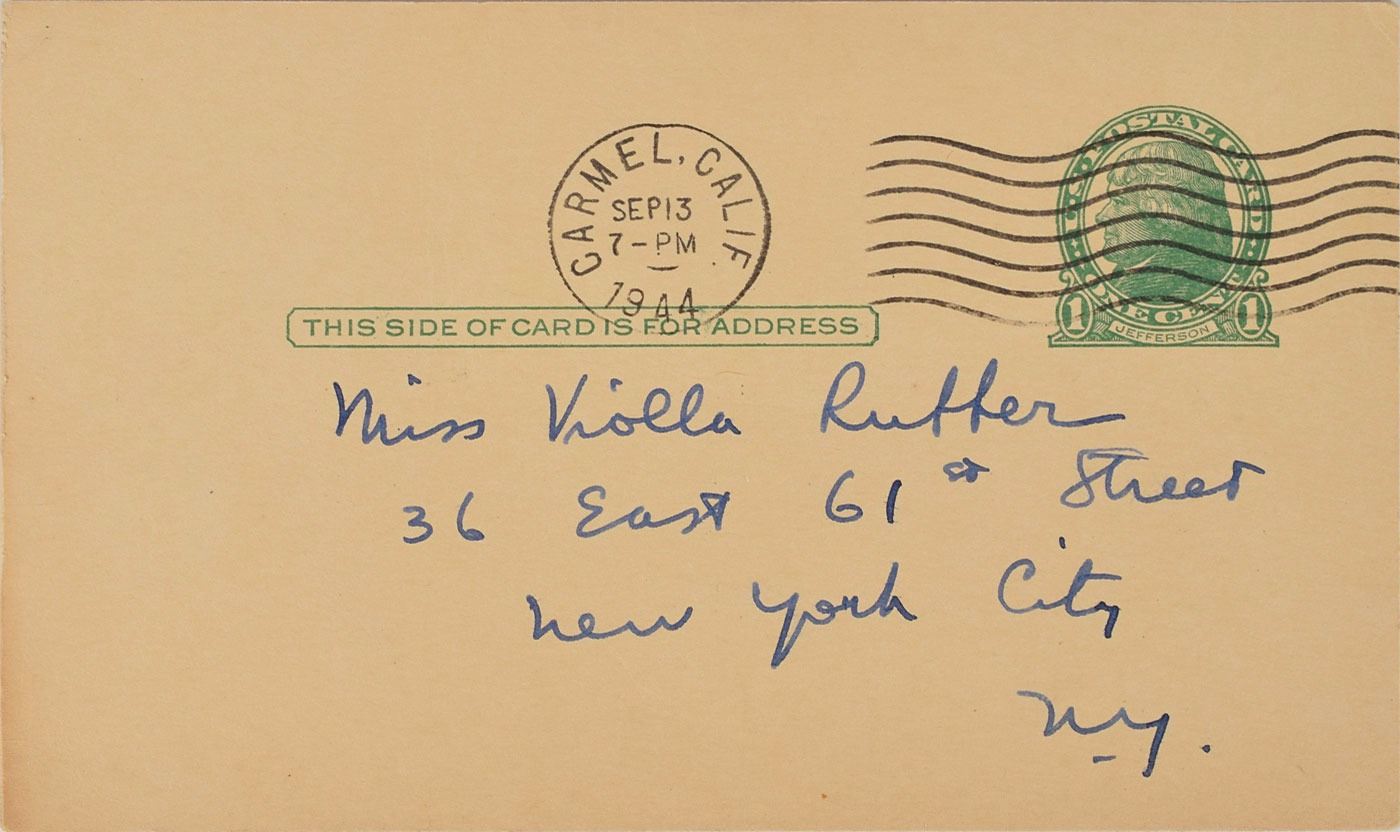 CARMEL, CALIF
SEP 13
7-PM
1944
U.S. POSTAL CARD
ONE CENT
1 JEFFERSON 1
THIS SIDE OF CARD IS FOR ADDRESS
Miss Violla Rutter
36 East 61st Street
New York City
N.Y.